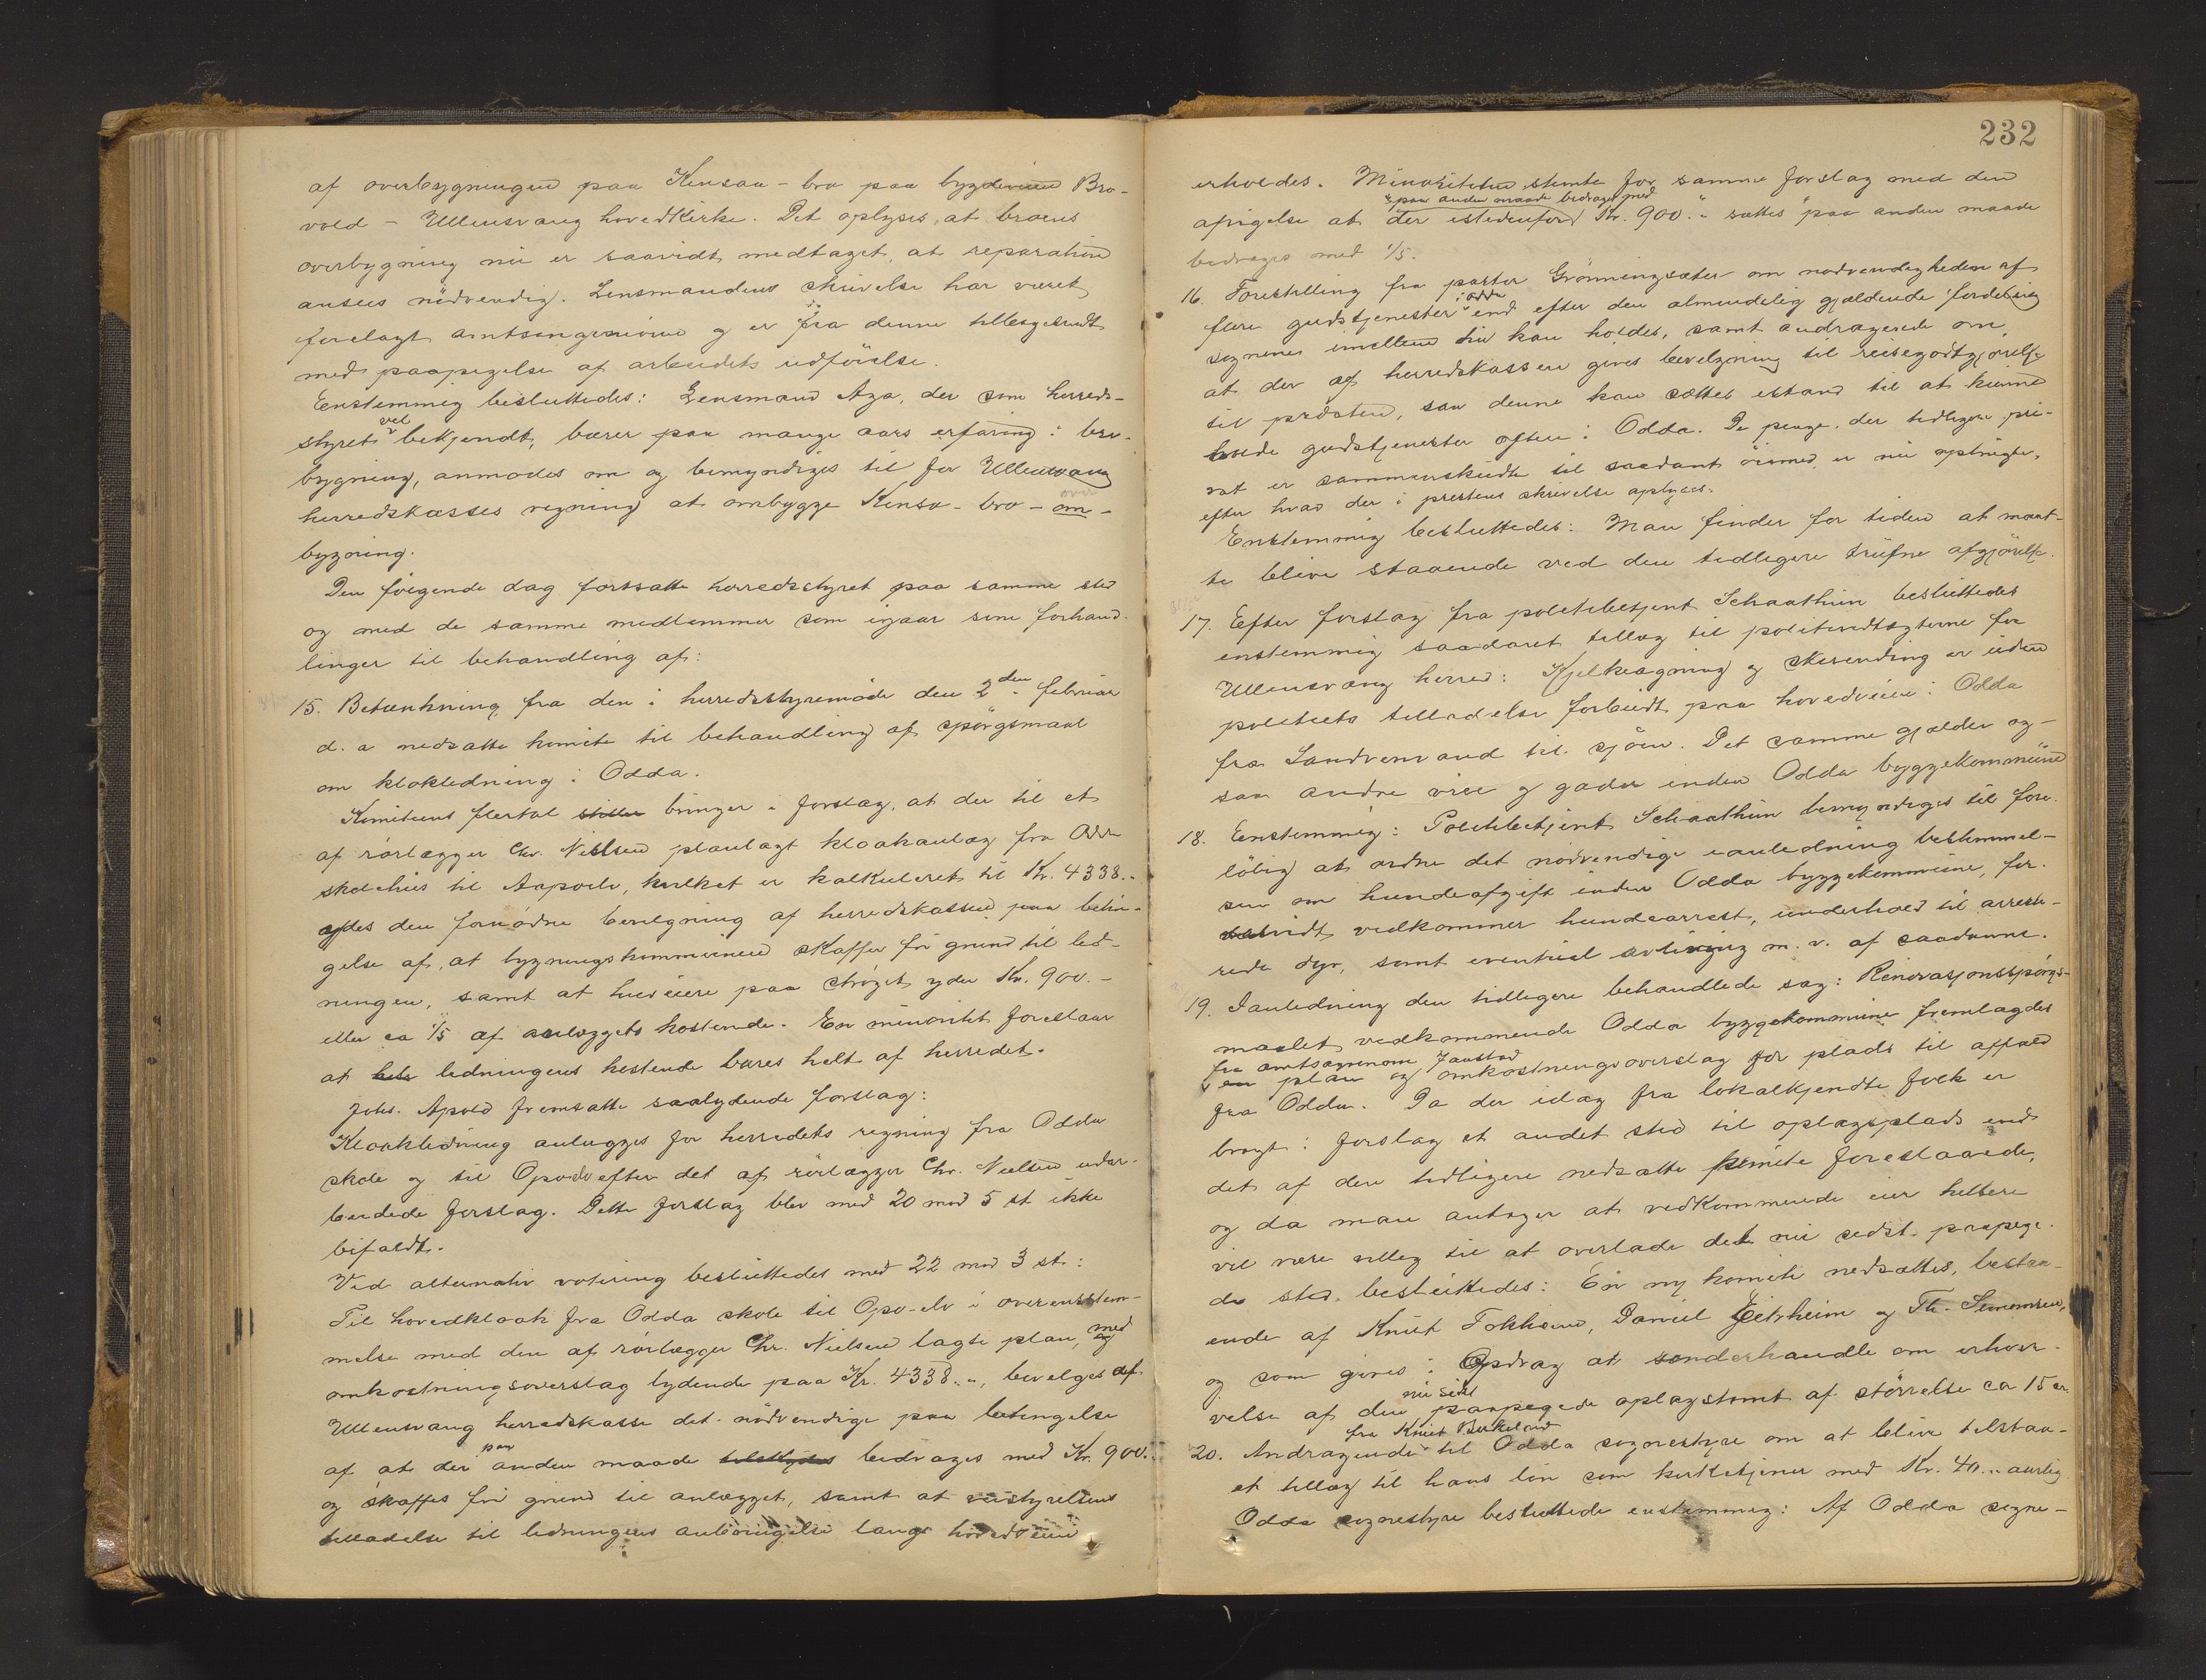 af overbygningen paa Kinsaa-bro paa bygdeveien Bro-
vold - Ullensvang hovedkirke. Det oplyses, at broens
overbygning nu er saavidt medtaget, at reparation
ansees nødvendig. Lensmandens skrivelse har været
forelagt amtsingeniøren og er fra denne tilbagesendt
med paapegelse af arbeidets udførelse.
Enstemmig besluttedes: Lensmand Aga, der som herreds-
styret vel bekjendt, bærer paa mange aars erfaring i bro-
bygning, anmodes om og bemyndiges til for Ullensvang
herredskasses regning at ombygge Kinso-bro-om-
over
bygning.
Den følgende dag fortsatte herredsstyret paa samme sted
og med de samme medlemmer som igaar sine forhand-
linger til behandling af:
15. Betænkning fra den i herredsstyremøde den 2den februar
d. a nedsatte komite til behandling af spørgsmaal
om klokledning i Odda.
Komiteens flertal stiller bringer i forslag, at der til et
af rørlægger Chr. Nielsen planlagt kloakanlæg fra Odda
skolehus til Aapoelv, hvilket er kalkuleret til Kr. 4338.-
ydes den fornødne bevilgning af herredskassen paa betin-
gelse af, at bygningskommunen skaffer fri grund til led-
ningen, samt at huseiere paa strøget yder Kr. 900.-
eller ca 1/5 af anlæggets kostende. En minoritet foreslaar
at hele ledningens kostende bæres helt af herredet.
Johs. Apold fremsatte saalydende forslag:
Kloakledning anlægges for herredets regning fra Odda
skole og til Opoelv efter det af rørlægger Chr. Nielsen udar-
beidede forslag. Dette forslag blev med 20 mod 5 st ikke
bifaldt.
Ved alternativ votering besluttedes med 22 mod 3 st:
Til hovedkloak fra Odda skole til Opo-elv i overensstem-
melse med den af rørlægger Chr. Nielsen lagte plan, med
omkostningsoverslag lydende paa Kr. 4338.-, bevilges af
Ullensvang herredskasse det nødvendige paa betingelse
af at der paa anden maade tilskydes bidrages med Kr. 900.-
og skaffes fri grund til anlægget, samt at veistyrelsens
tilladelse til ledningens anbringelse langs hovedveien
232
erholdes. Minoriteten stemte for samme forslag med den
paa anden maade bidraget med
afvigelse at der istedenfor Kr. 900.- sættes "paa anden maade
bidrages med 1/5.
16. Forestilling fra pastor Grønningsæter om nødvendigheden af
flere gudstjenester i Odda end efter den almindelig gjældende fordeling
sognene imellem kan holdes, samt andragende om,
at der af herredskassen gives bevilgning til reisegodtgjørelse
til præsten, saa denne kan sættes istand til at kunne
holde gudstjenester oftere i Odda. De penge, der tidligere pri-
vat er sammenskudt til saadant øiemed, er nu opbrugte,
efter hvad der i prestens skrivelse oplyses.
Enstemmig besluttedes: Man finder for tiden at maat-
te blive staaende ved den tidligere trufne afgjørelse.
17. Efter forslag fra politibetjent Schaathun besluttedes
enstemmig saadant tillæg til politivedtægterne for
Ullensvang herred: Kjelkeagning og skirending er uden
politiets tilladelse forbudt paa hovedveien i Odda
fra Sandvenvand til sjøen. Det samme gjælder og-
saa andre veie og gader inden Odda byggekommune
18. Enstemmig: Politibetjent Schaathun bemyndiges til fore-
løbig at ordne det nødvendige i anledning bestemmel-
sen om hundeafgift inden Odda byggekommune, for-
saavidt vedkommer hundearrest, underhold til arreste-
rede dyr, samt eventuel avlivning m. v. af saadanne.
19. I anledning den tidligere behandlede sag: Renovasjonsspørgs-
maalet vedkommende Odda byggekommune fremlagdes
fra amtsagronom Jaastad
en plan og omkostningsoverslag for plads til affald
fra Odda. Da der idag fra lokalkjendte folk er
bragt i forslag et andet sted til oplagsplads end
det af den tidligere nedsatte komite foreslaaede,
og da man antager at vedkommende eier hellere
vil være villig til at overlade det nu sidst paapege-
de sted, besluttedes: En ny komite nedsættes, bestaa-
ende af Knut Tokheim, Daniel Eitrheim og Th. Simonsen,
og som gives i Opdrag at underhandle om erhver-
velse af den nu sidst paapegede oplagstomt af størrelse ca 15 ar.
20. Andragende fra Knut Berkeland til Odda sognestyre om at blive tilstaa-
et tillæg til hans løn som kirketjener med Kr. 40.- aarlig
Odda sognestyre besluttede enstemmig: Af Odda sogne-